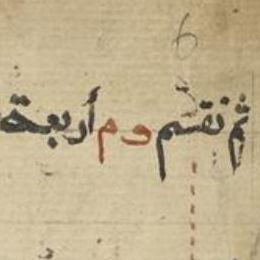 6
ثم نقسم و م أربعة